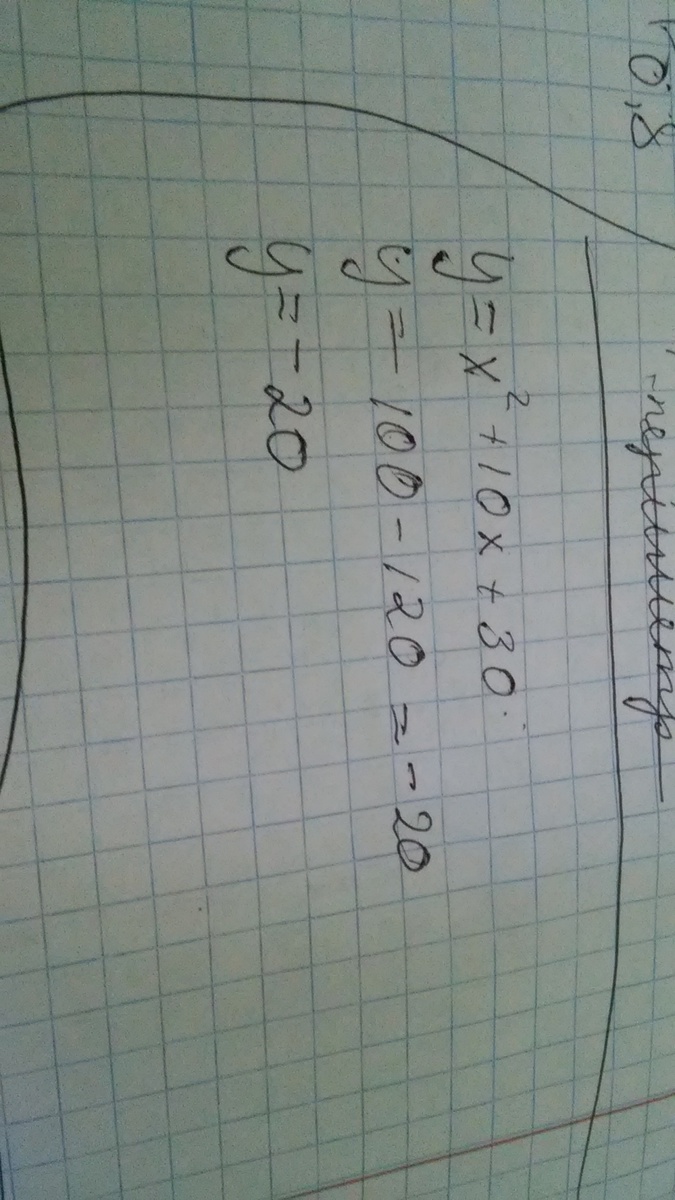 0,8
-периметр
y = x² + 10x + 30
y = - 100 - 120 = - 20
y = - 20